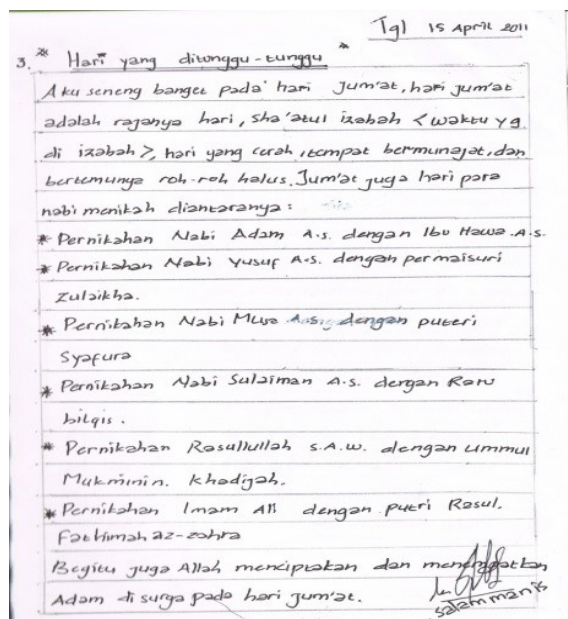 Tgl 15 April 2011
3. * Hari yang ditunggu-tunggu *
Aku seneng banget pada' hari Jum'at, hari Jum'at
adalah rajanya hari, sha'atul izabah <waktu yg
di izabah>, hari yang cerah, tempat bermunajat, dan
bertemunya roh-roh halus. Jum'at juga hari para
nabi menikah diantaranya :
* Pernikahan Nabi Adam A.s. dengan Ibu Hawa A.s.
* Pernikahan Nabi Yusuf A.s. dengan permaisuri
Zulaikha.
* Pernikahan Nabi Musa A.s. dengan puteri
Syafura
* Pernikahan Nabi Sulaiman A.s. dengan Ratu
bilqis.
* Pernikahan Rasullullah s.a.w. dengan ummul
Mukminin. Khadijah.
* Pernikahan Imam Ali dengan puteri Rasul.
Fathimah az-zahra
Begitu juga Allah menciptakan dan menempatkan
Adam di surga pada hari jum'at.
salam manis